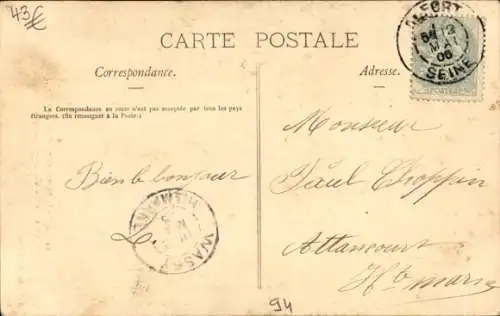 43€
CARTE POSTALE
Correspondance.
Adresse.
La Correspondance au recto n'est pas acceptée par tous les pays
étrangers. (Se renseigner à la Poste.)
ALFORT
MAI
06
SEINE
Monsieur
Bien le bonjour
Paul Choppin
WASSY
Attancourt
Hte marne
94